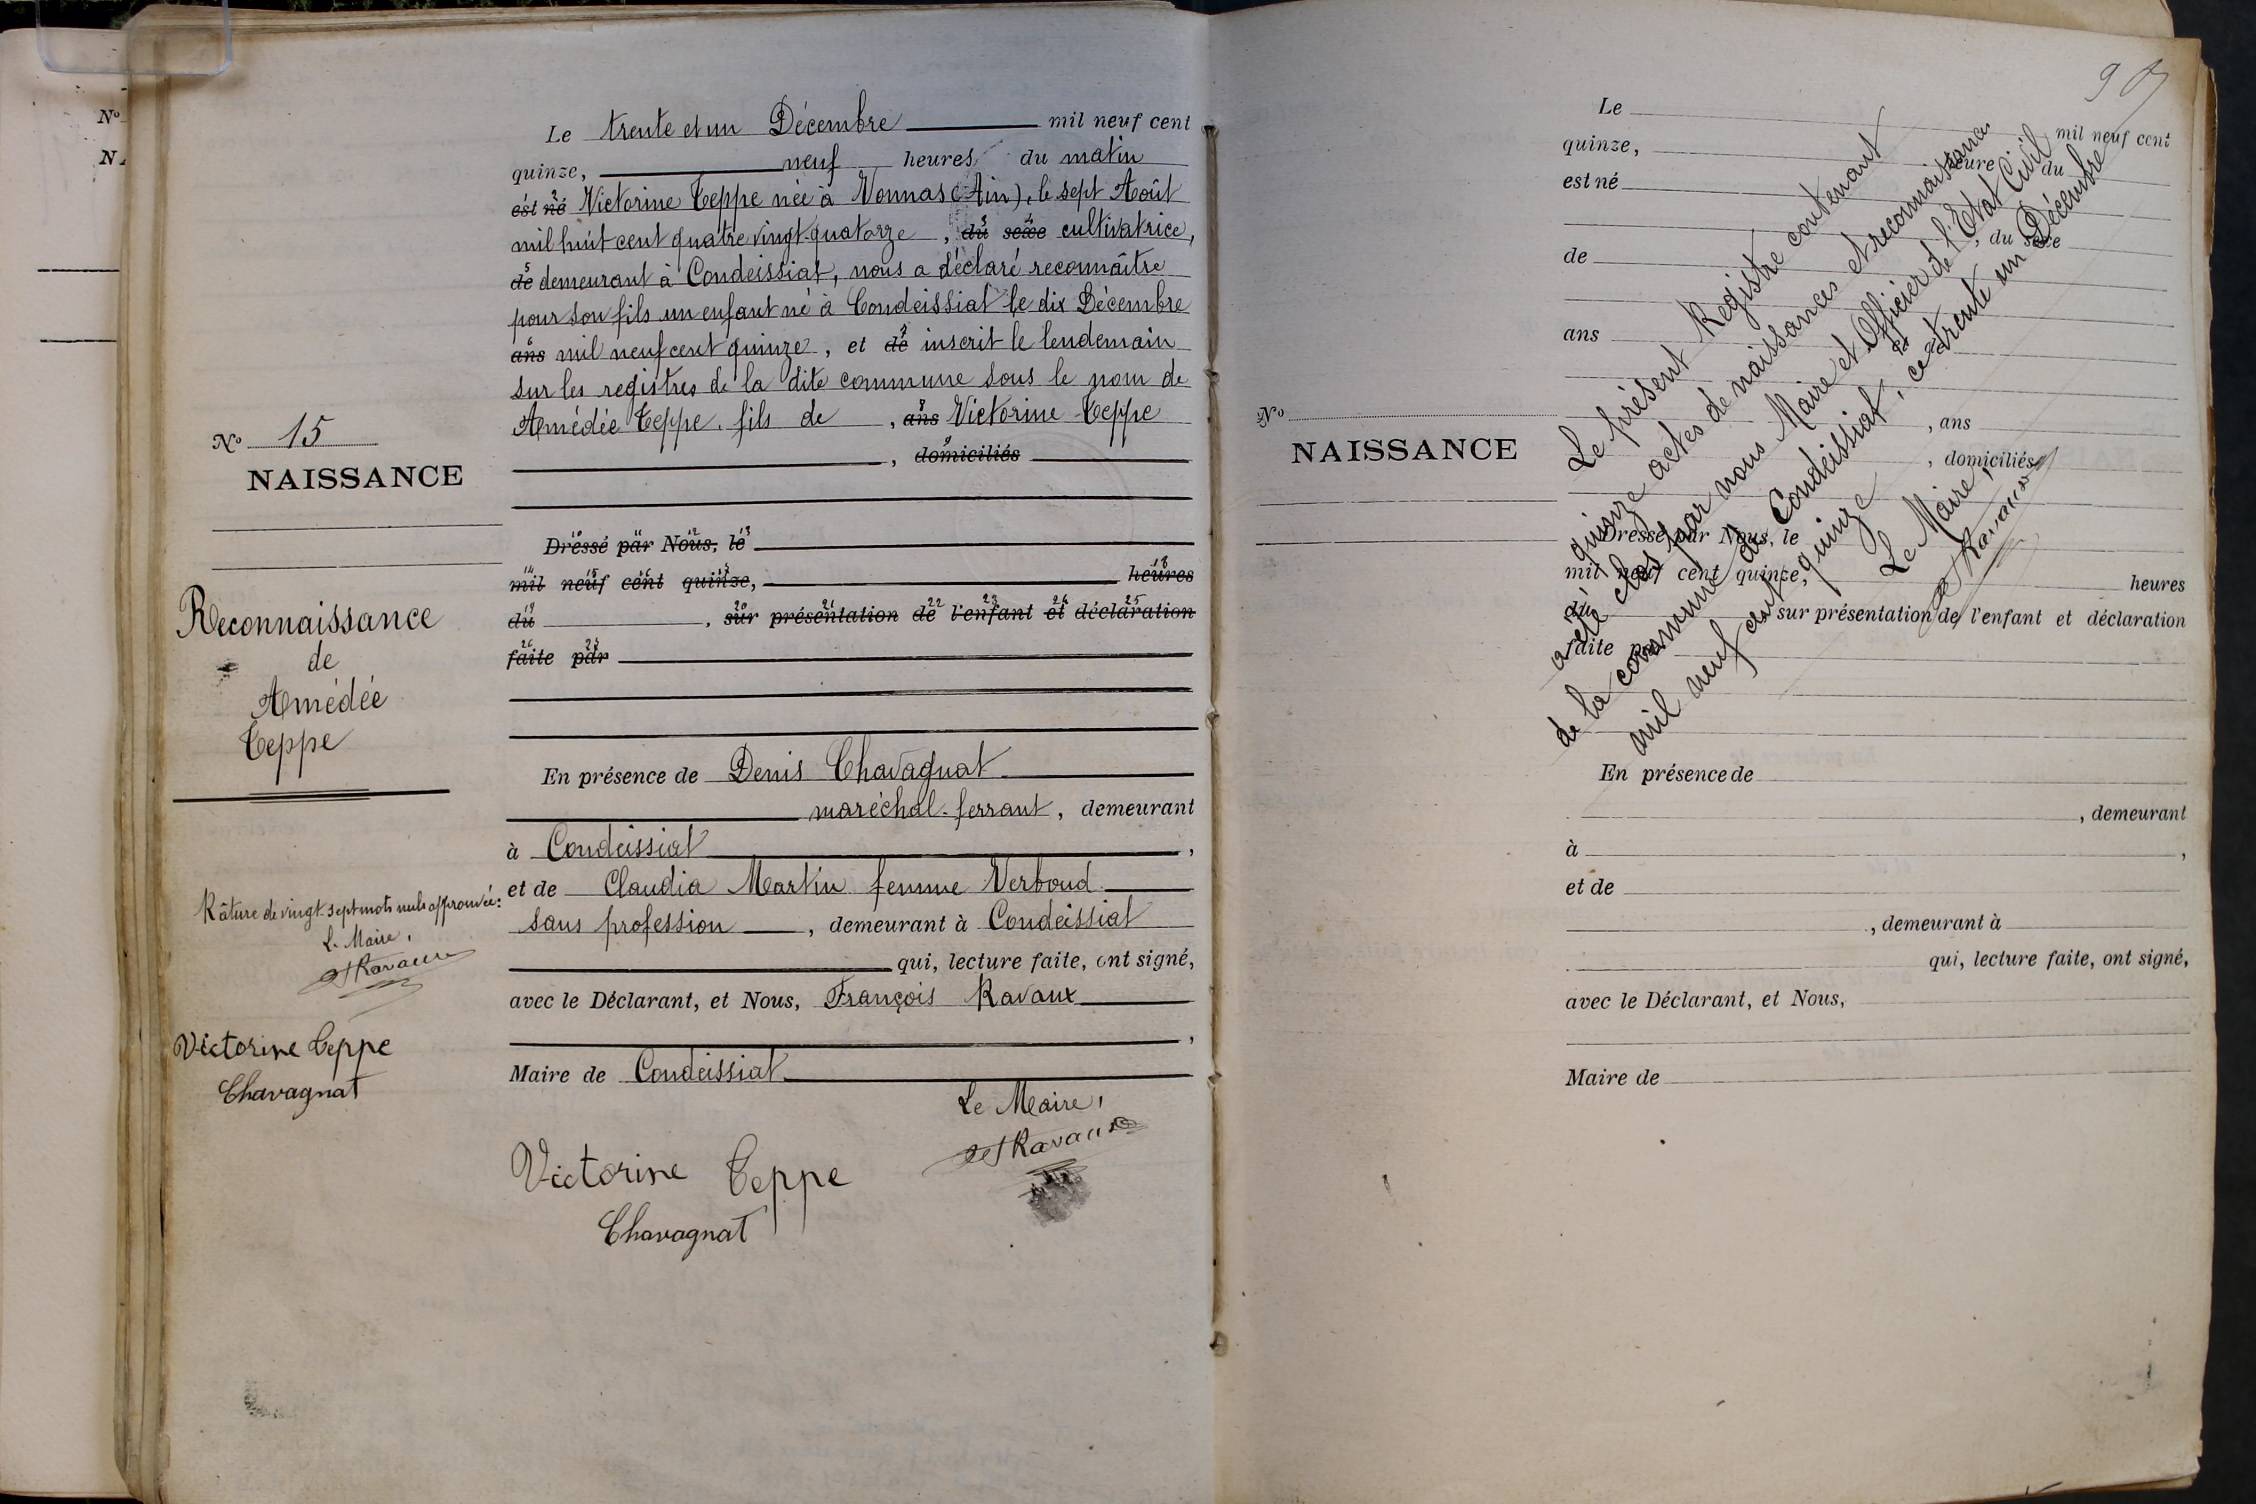 Nº
N
Nº 15
NAISSANCE
Reconnaissance
de
Amédée
Teppe
Râture de vingt-sept mots nuls approuvée:
Le Maire,
Ravaux
Victorine Teppe
Chavagnat
Le trente et un Décembre mil neuf cent
quinze, neuf heures du matin
est né Victorine Teppe née à Vonnas (Ain), le sept Août
mil huit cent quatre vingt-quatorze, du sexe cultivatrice,
de demeurant à Condeissiat, nous a déclaré reconnaître
pour son fils un enfant né à Condeissiat le dix Décembre
ans mil neuf cent quinze, et de inscrit le lendemain
sur les registres de la dite commune sous le nom de
Amédée Teppe, fils de , ans Victorine Teppe
, domiciliés
Dressé par Nous, le
mil neuf cent quinze, heures
du , sur présentation de l'enfant et déclaration
faite par
En présence de Denis Chavagnat
maréchal-ferrant, demeurant
à Condeissiat,
et de Claudia Martin femme Verboud
sans profession, demeurant à Condeissiat
qui, lecture faite, ont signé,
avec le Déclarant, et Nous, François Ravaux
,
Maire de Condeissiat
Le Maire,
Ravaux
Victorine Teppe
Chavagnat
Nº
NAISSANCE
Le mil neuf cent
quinze, heure du
est né
, du sexe
de
ans et de
, ans
, domiciliés
Dressé par Nous, le
mil neuf cent quinze, heures
du sur présentation de l'enfant et déclaration
faite par
En présence de
, demeurant
à ,
et de
, demeurant à
qui, lecture faite, ont signé,
avec le Déclarant, et Nous,
Maire de
Le présent Registre contenant
quinze actes de naissances et reconnaissances
a été clos par nous Maire et Officier de l'Etat Civil
de la commune de Condeissiat, ce trente un Décembre
mil neuf cent quinze
Le Maire,
Ravaux